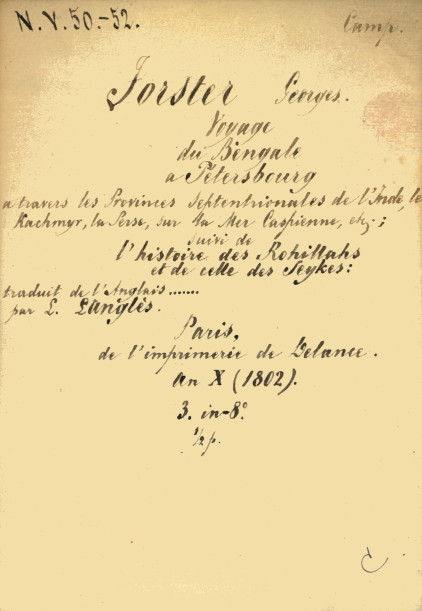 N. V. 50.-52.
Camp.
Forster Georges.
Voyage
du Bengale
a Pétersbourg
a travers les Provinces Septentrionales de l'Inde, le
Kachmyr, la Perse, sur la Mer Caspienne, etc.;
Suivi de
l'histoire des Rohillahs
et de celle des Seykes:
traduit de l'Anglais.......
par L. Langlès.
Paris,
de l'imprimerie de Delance.
an X (1802).
3. in-8°.
1/2 p.
C